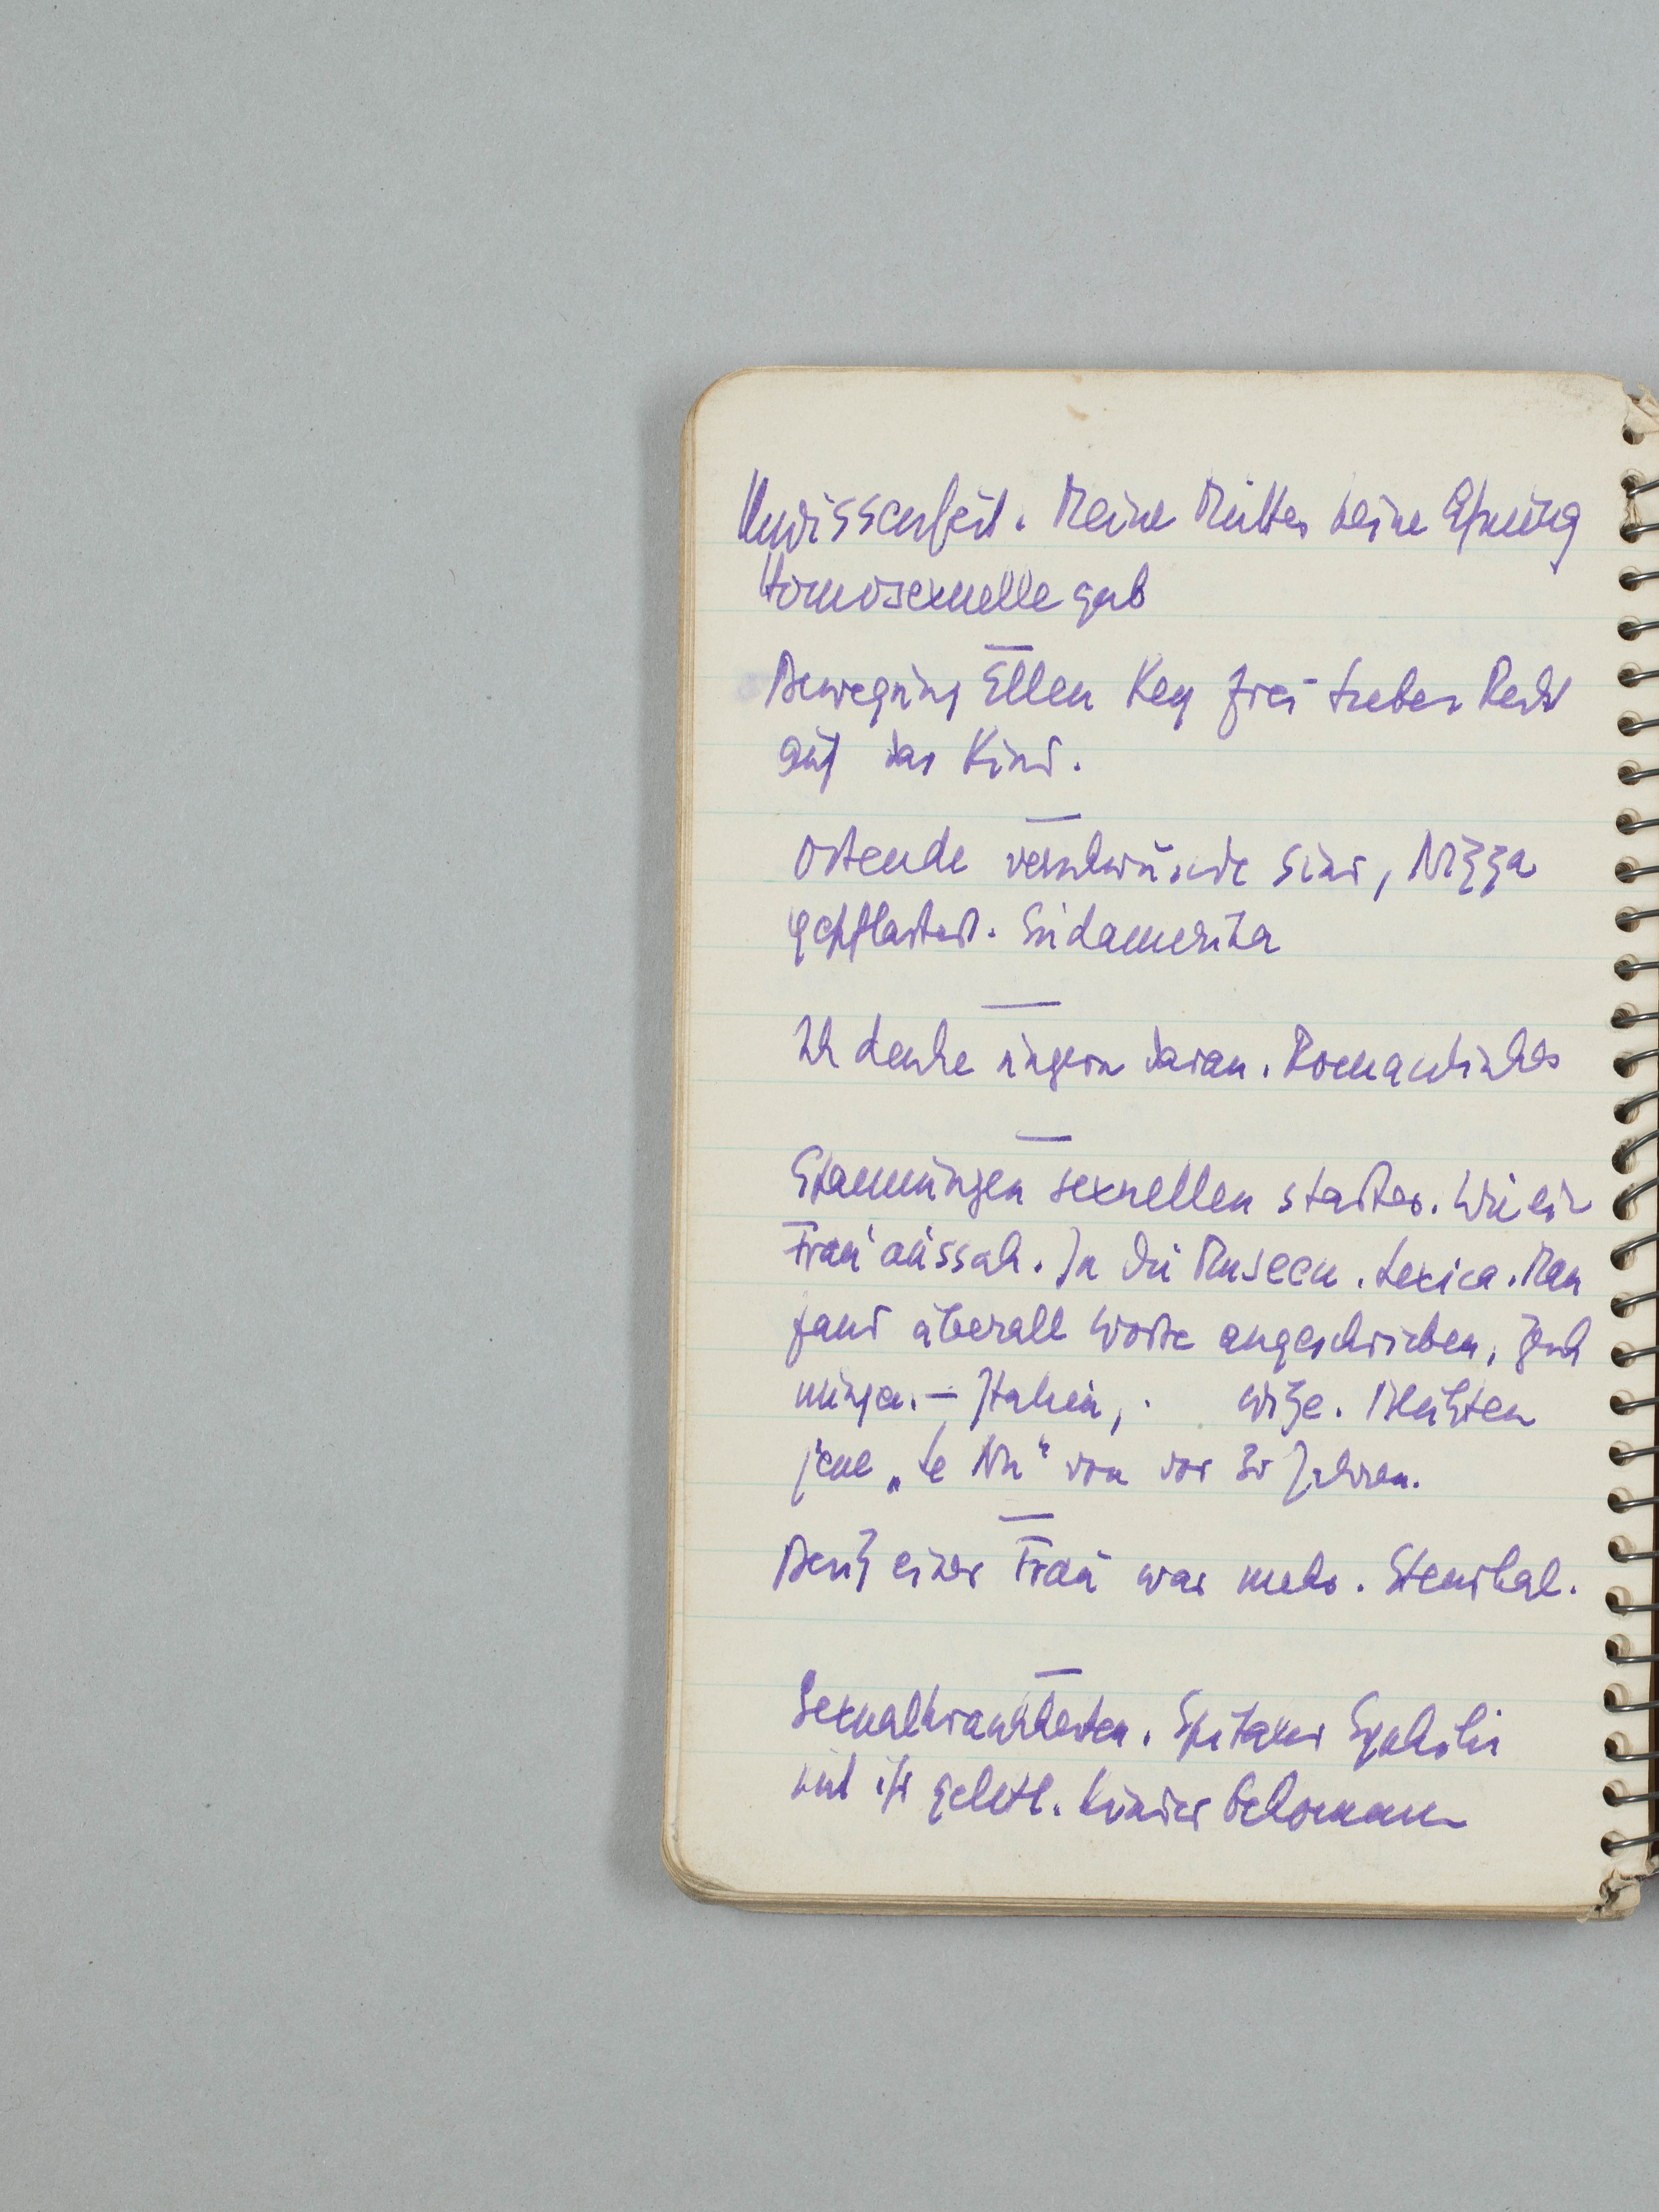 Unwissenheit. Meine Mutter keine Ahnung
Homosexuelle gab
—
Bewegung Ellen Key frei Lieben Recht
auf das Kind.
—
Ostende verschwunde sind, Nizza
gepflastert. Südamerika
—
Ich denke ungern daran. Romantisches
—
Spannungen sexuellen starker. Wie ein
Frau aussah. In die Museen. Lexica. Man
fand überall Worte angeschrieben, Zeich
nungen. — Italien, Witze. Blühten
jene „Le Nu“ von vor 30 Jahren.
—
Besitz einer Frau war mehr. Stendhal.
—
Sexualkrankheiten. Syphilis
mit ihr gelebt. Kinder bekommen